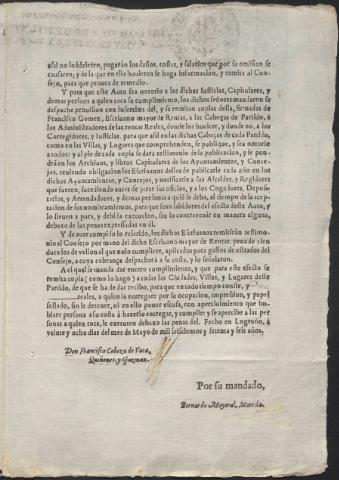 assi no lo hizieren, pagaràn los daños, costas, y salarios que por su omission se
causaren, y de la que en ello huuieren se haga informacion, y remita al Con-
sejo, para que prouea de remedio.
Y para que este Auto sea notorio a las dichas Iusticias, Capitulares, y
demas personas a quien toca su cumplimiento, los dichos señores mandaron se
despache prouision con insercion dèl, y se remitan copias della, firmadas de
Francisco Gomez, Escriuano mayor de Rentas, a las Cabeças de Partido, à
los Administradores de las rentas Reales, donde los huuiere, y donde no, a los
Corregidores, y Iusticias, para què assi en las dichas Cabeças de cada Partido,
como en las Villas, y Lugares que comprehenden, se publique, y sea notorio
a todos: y al pie de cada copia se darà testimonio de la publicacion, y se pon-
drà en los Archiuos, y libros Capitulares de los Ayuntamientos, y Conce-
jos, teniendo obligacion los Escriuanos dellos de publicarle cada año en los
dichos Ayuntamientos, y Concejos, y notificarle a los Alcaldes, y Regidores
que fueren, sucediendo antes de jurar sus oficios, y a los Cogedores, Deposi-
tarios, y Arrendadores, y demas personas a quiē se deba, al tiempo de la acep-
tacion de sus nombramientos, para que sean sabidores del efecto deste Auto, y
lo lleuen a pura, y debida execucion, sin lo contrauenir en manera alguna,
debaxo de las penas expressadas en èl.
Y de auer cumplido lo referido, los dichos Escriuanos remitiràn testimo-
nio al Consejo por mano del dicho Escriuano mayor de Rentas, pena de cien
ducados de vellon al que no lo cumpliere, aplicados para gastos de estrados del
Consejo, a cuya cobrança despacharà a su costa, y lo señalaron.
A el qual se manda dar entero cumplimiento, y que para este efecto se
remita copia (como lo hago) a todas las Ciudades, Villas, y Lugares deste
Partido, de que se ha de dar recibo, para que en todo tiempo conste, y
reales, a quien la entregare por su ocupacion, impression, y papel
sellado, sin le detener, ni en ello poner escusa, con apercibimiento que im-
biare persona a su costa à hazerlo entregar, y cumplir: y se apercibe a las per-
sonas a quien toca, se executen debaxo las penas del. Fecho en Logroño, à
veinte y ocho dias del mes de Mayo de mil seiscientos y setenta y seis años.
Don Francisco Cabeza de Vaca,
Quiñones, y Guzman.
Por su mandado,
Bernardo Mayoral, Moreda.